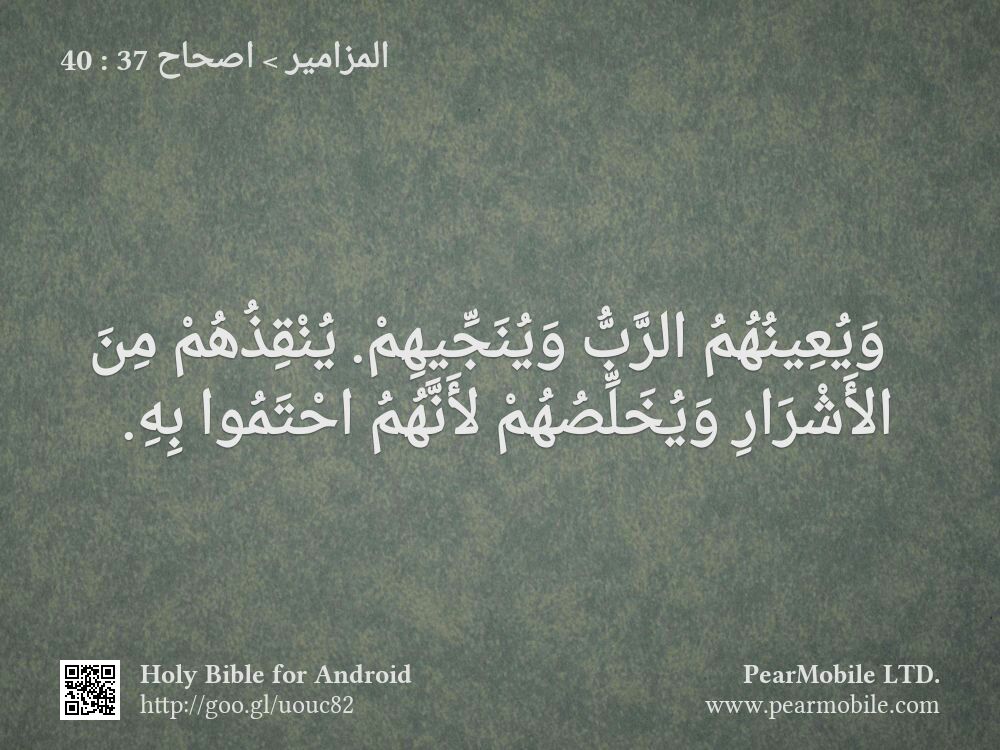 المزامير > اصحاح 37 : 40
وَيُعِينُهُمُ الرَّبُّ وَيُنَجِّيهِمْ. يُنْقِذُهُمْ مِنَ
الأَشْرَارِ وَيُخَلِّصُهُمْ لأَنَّهُمُ احْتَمُوا بِهِ.
Holy Bible for Android
http://goo.gl/uouc82
PearMobile LTD.
www.pearmobile.com